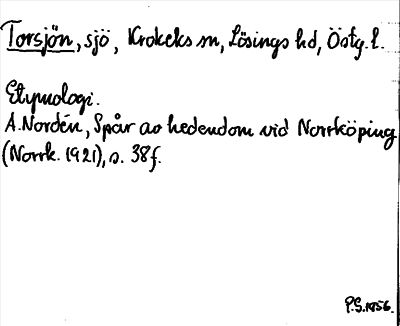 Torsjön, sjö, Krokeks sn, Lösings hd, Östg. l.
Etymologi.
A. Nordén, Spår av hedendom vid Norrköping
(Norrk. 1921), s. 38f.
P.S. 1956.